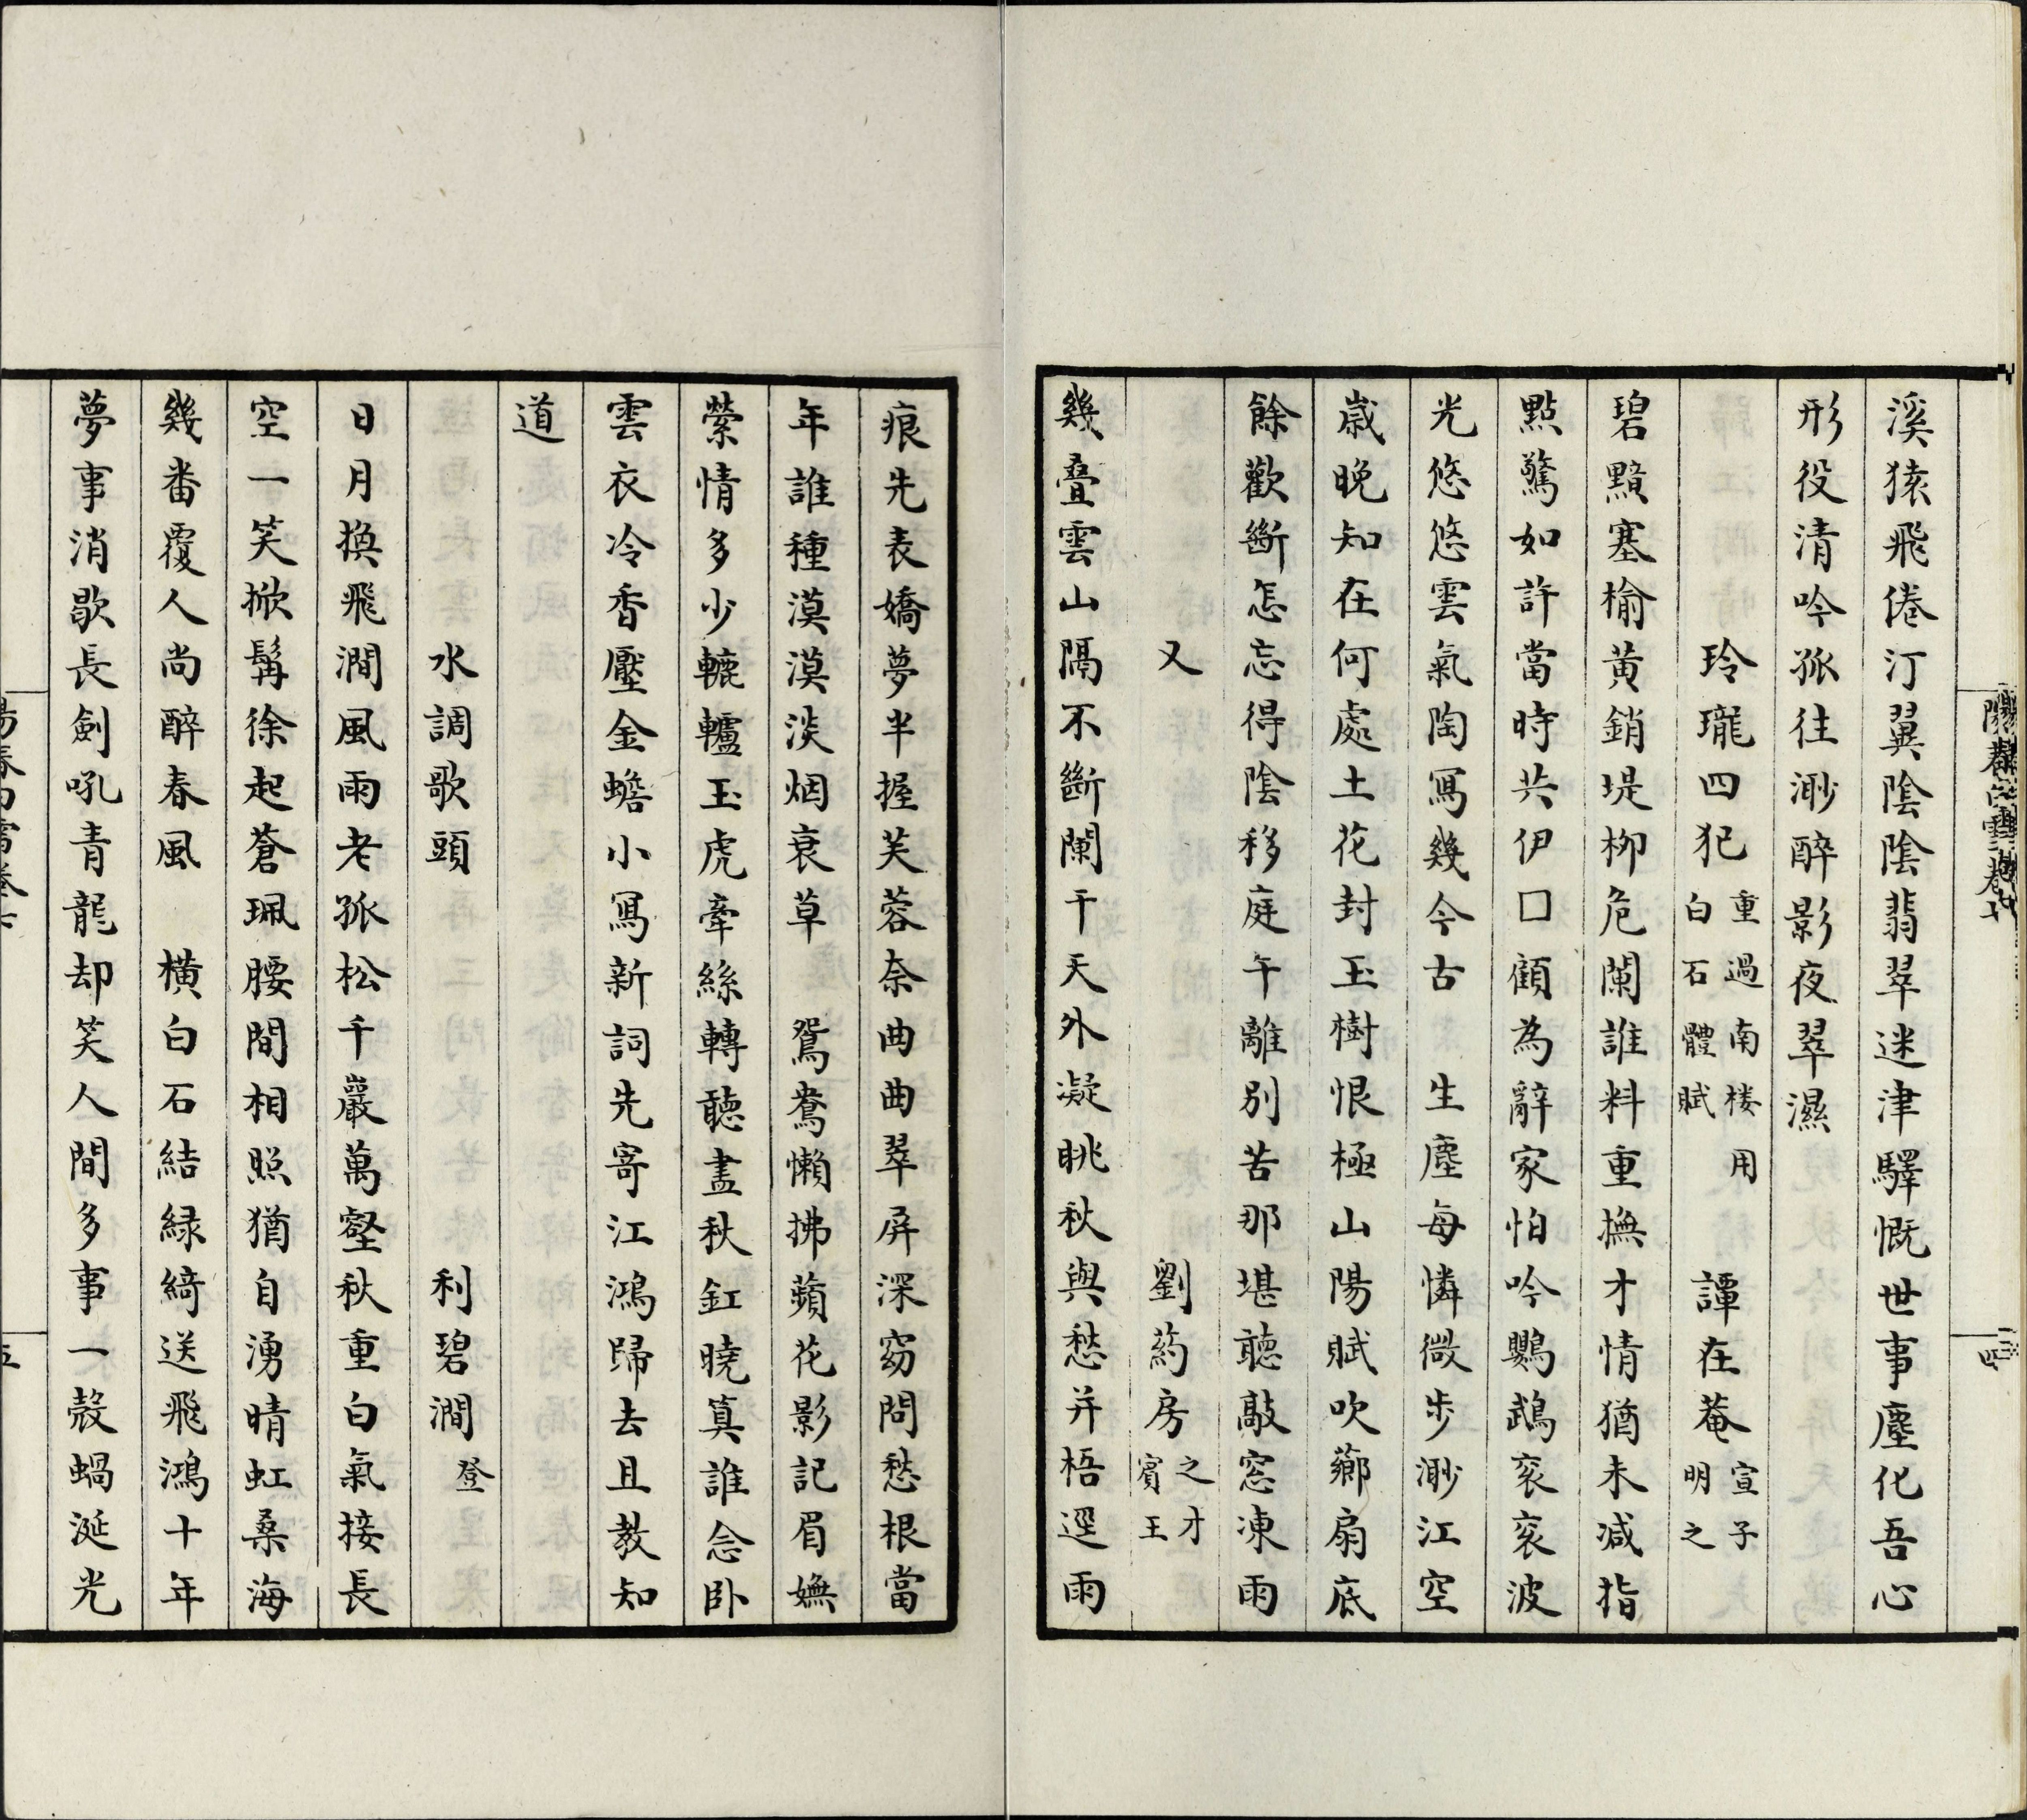 溪猿飛倦汀翼陰陰翡翠迷津驛慨世事塵化吾心
形役清吟孤往渺醉影夜翠濕
玲瓏四犯 重過南楼用白石體賦 譚在菴 宣子明之
碧黯塞榆黃銷堤柳危闌誰料重撫才情猶未減指
點驚如許當時共伊囗顧為辭家怕吟鸚鵡衮衮波
光悠悠雲氣陶寫幾今古 生塵每憐微步渺江空
歲晚知在何處土花封玉樹恨極山陽賦吹薌扇底
餘歡斷怎忘得陰移庭午離別苦那堪聽敲窓凍雨
又 劉葯房 之才賓王
幾疊雲山隔不斷闌干天外凝眺秋與愁并梧逕雨
痕先表嬌夢半握芙蓉奈曲曲翠屏深窈問愁根當
年誰種漠漠淡烟衰草 鴛鴦懶拂蘋花影記眉嫵
縈情多少轆轤玉虎牽絲轉聽盡秋釭曉算誰念卧
雲衣冷香壓金蟾小寫新詞先寄江鴻歸去且教知
道
水調歌頭 利碧澗 登
日月換飛澗風雨老孤松千巖萬壑秋重白氣接長
空一笑掀髯徐起蒼珮腰間相照猶自湧晴虹桑海
幾番覆人尚醉春風 橫白石結綠綺送飛鴻十年
夢事消歇長劍吼青龍却笑人間多事一殼蝸涎光